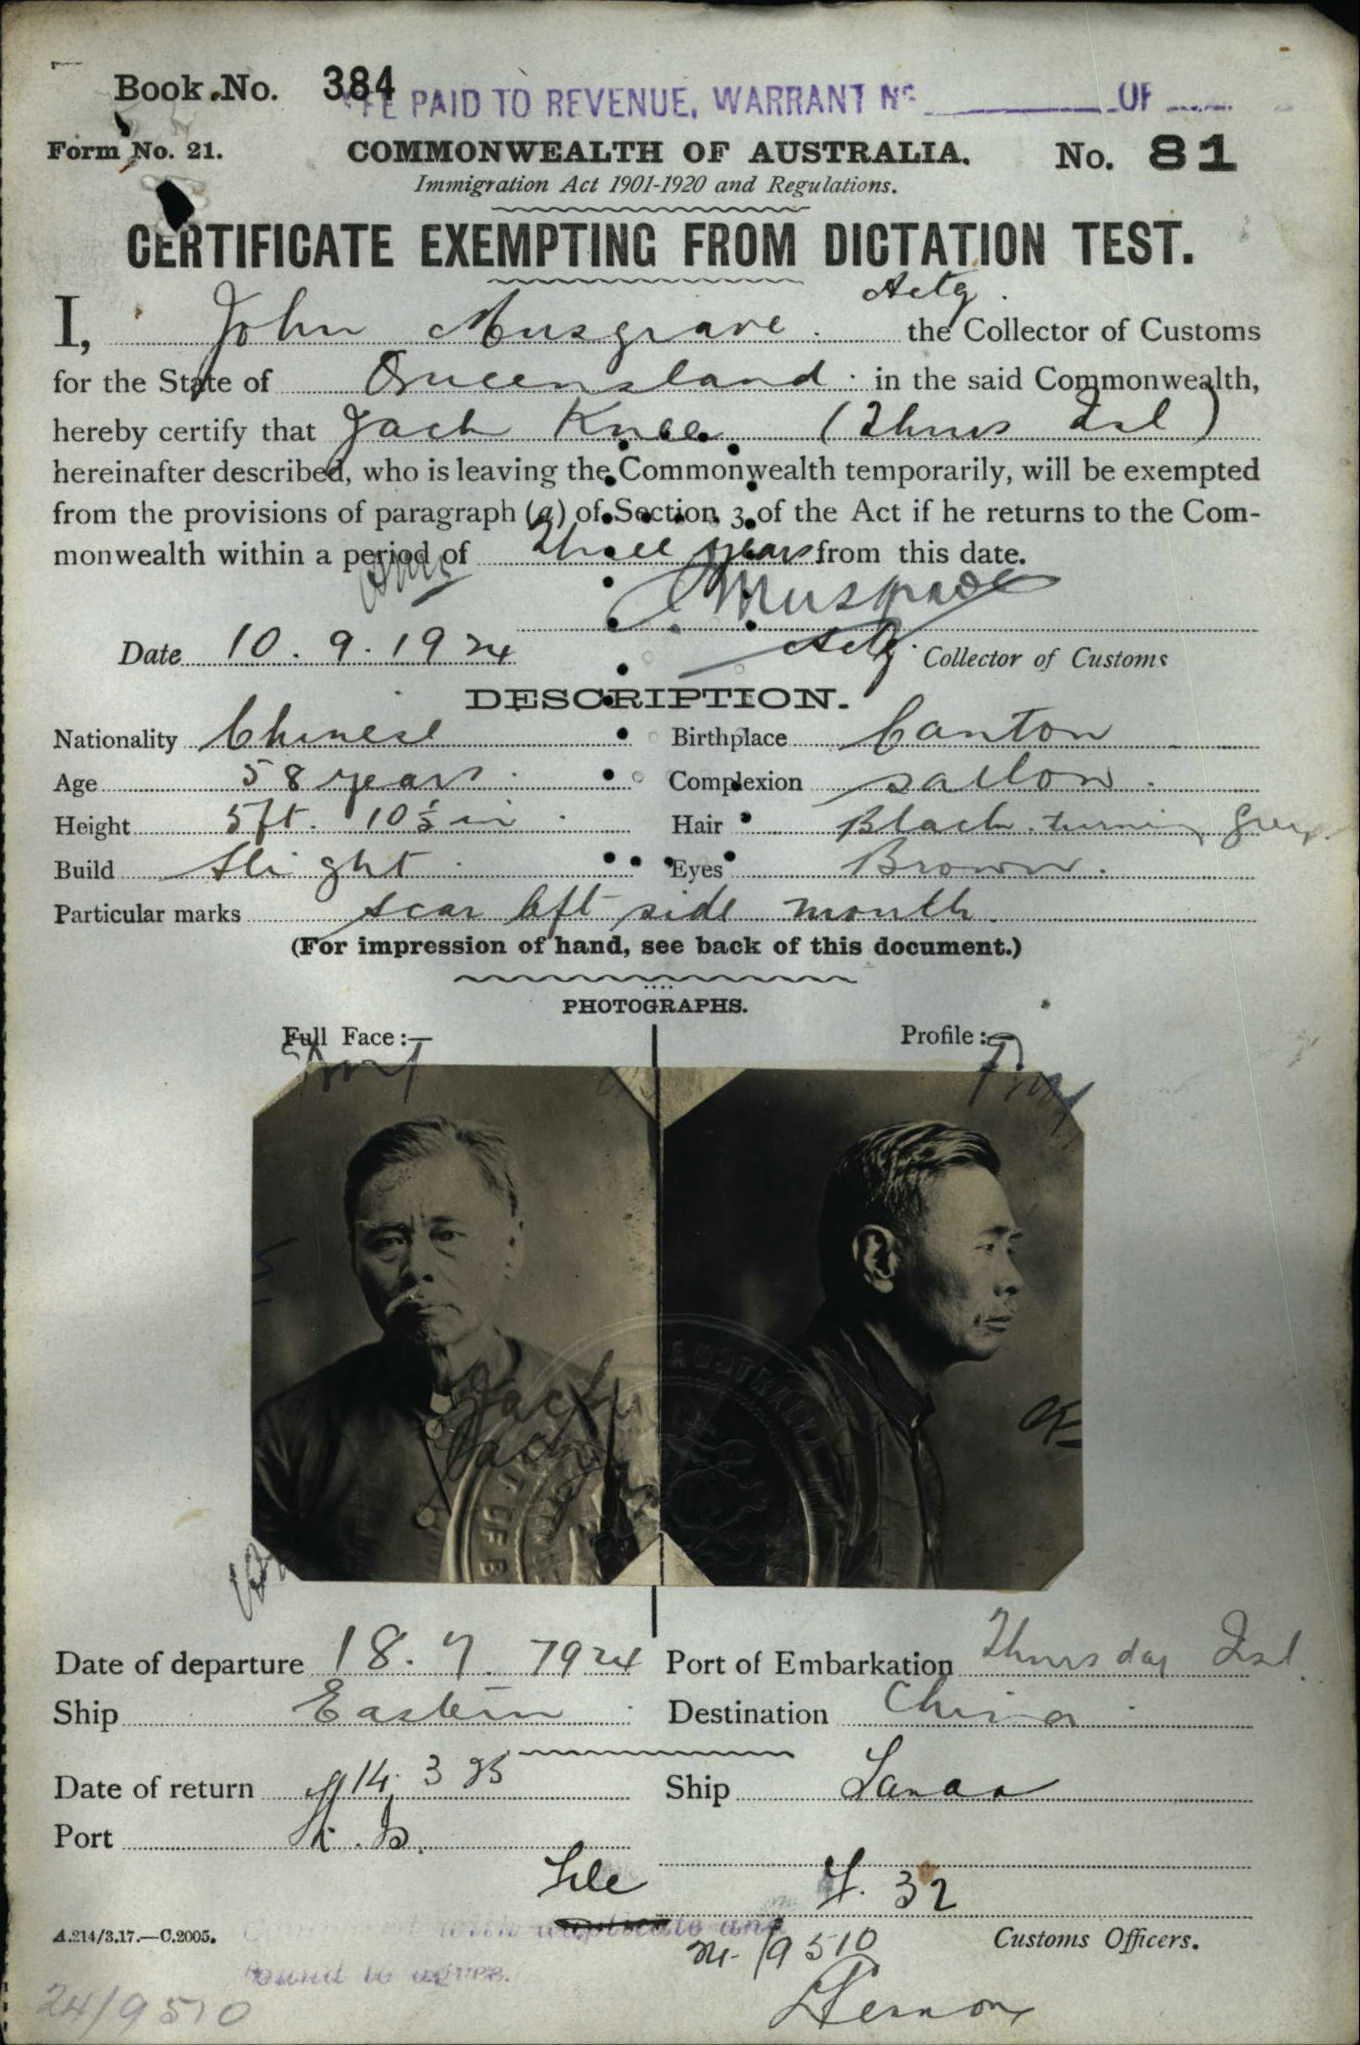 Book No. 384
FEE PAID TO REVENUE, WARRANT No OF
Form No. 21. COMMONWEALTH OF AUSTRALIA. No. 81
Immigration Act 1901-1920 and Regulations.
CERTIFICATE EXEMPTING FROM DICTATION TEST.
Actg.
I, John Musgrave. the Collector of Customs
for the State of Queensland. in the said Commonwealth,
hereby certify that Jack Knee (Thurs Isl)
hereinafter described, who is leaving the Commonwealth temporarily, will be exempted
from the provisions of paragraph (a) of Section 3 of the Act if he returns to the Com-
monwealth within a period of three years from this date.
J Musgrave
Date 10.9.1924 Actg. Collector of Customs
DESCRIPTION.
Nationality Chinese Birthplace Canton
Age 58 years. Complexion sallow.
Height 5ft. 10½ in. Hair Black turning grey.
Build Slight. Eyes Brown.
Particular marks scar left side mouth.
(For impression of hand, see back of this document.)
PHOTOGRAPHS.
Full Face:— Profile:—
Jack
Date of departure 18.7.1924 Port of Embarkation Thursday Isl.
Ship Eastern. Destination China.
Date of return 14.3 25 Ship
Port T.I.
F. 32
A.214/3.17.—C.2005. with duplicate and Customs Officers.
found to agree. 24/9510
24/9510